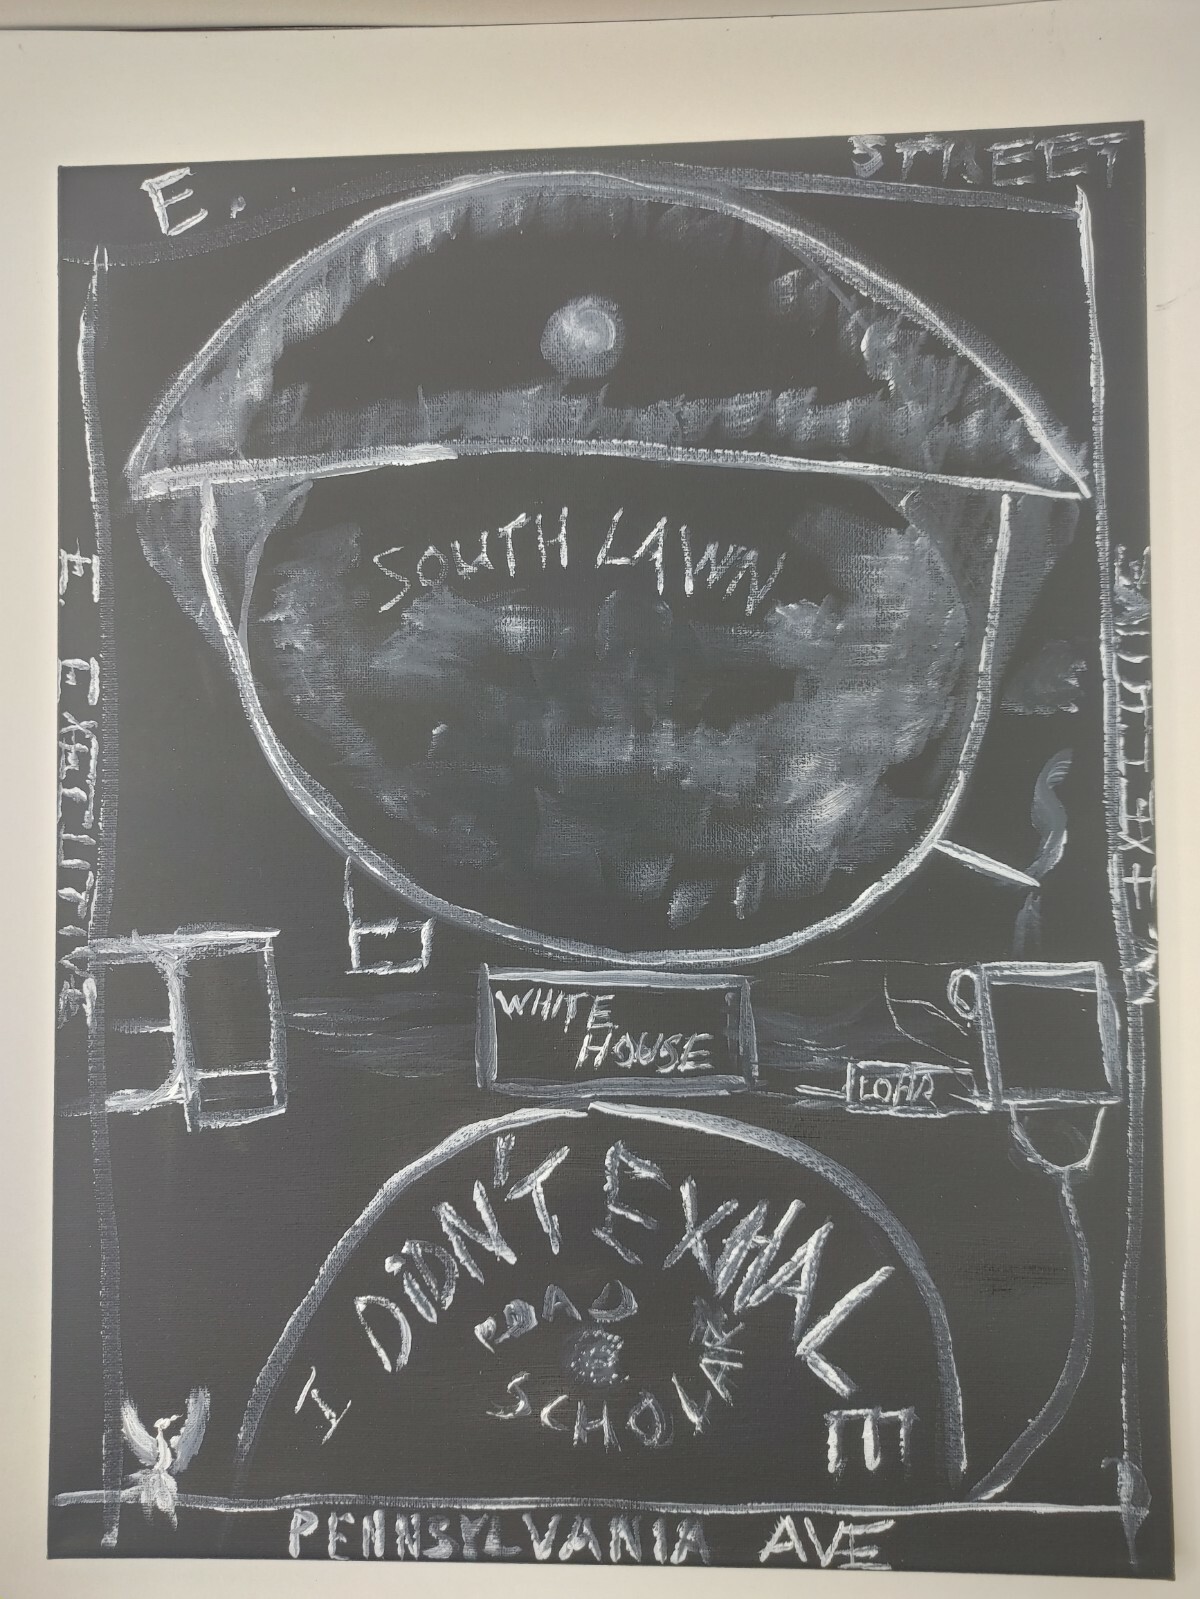 E. STREET
SOUTH LAWN
E. EXECUTIVE
W. EXECUTIVE
WHITE
HOUSE
I DIDN'T EXHALE
ROAD
SCHOLAR
PENNSYLVANIA AVE